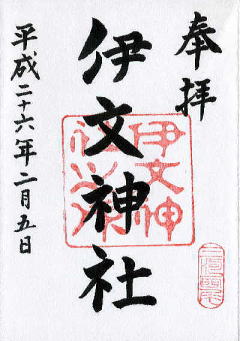 奉拝
伊文神社
伊文神
平成二十六年二月五日